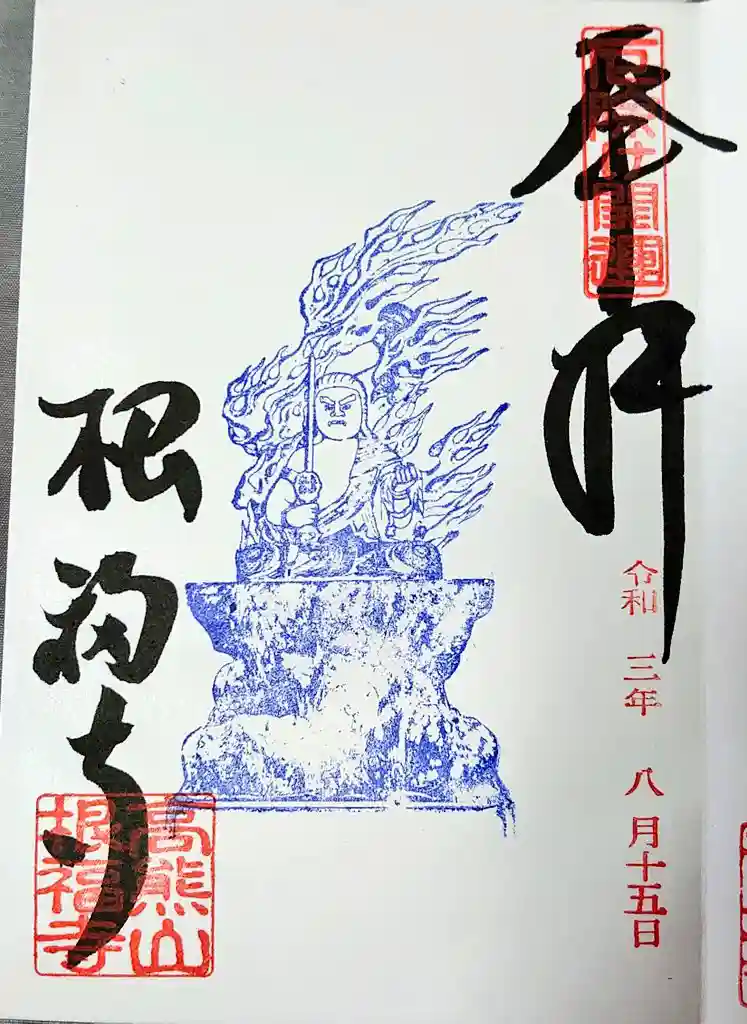 奉拝
厄除け開運
令和 三年 八月十五日
根福寺
高熊山
根福寺